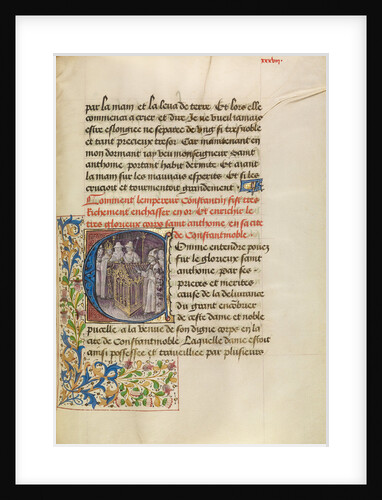 xxxviij.
par la main et la leua de terre Et lors elle
commenca a crier et dire Je ne vueil iamais
estre eslongiee ne separee de vng si tresnoble
et tant precieux tresor Car maintenant en
mon dormant iay veu monseigneur saint
anthoine portant habit dermite Et auant
la main sur les mauuais esperits Et si les
cruçioit et tourmentoit grandement
Comment lempereur Constantin fist tres
Richement enchasser en or Et enrichir le
tres glorieux corps saint anthoine en sa cite
de Constantinoble
Comme entendre pouez
fut le glorieux saint
anthoine par ses
prieres et merites
cause de la deliurance
du grant encombrier
de ceste dame et noble
pucelle a la venue de son digne corps en la
cite de Constantinoble Laquelle dame estoit
ainsi possessee et trauaillee par plusieurs